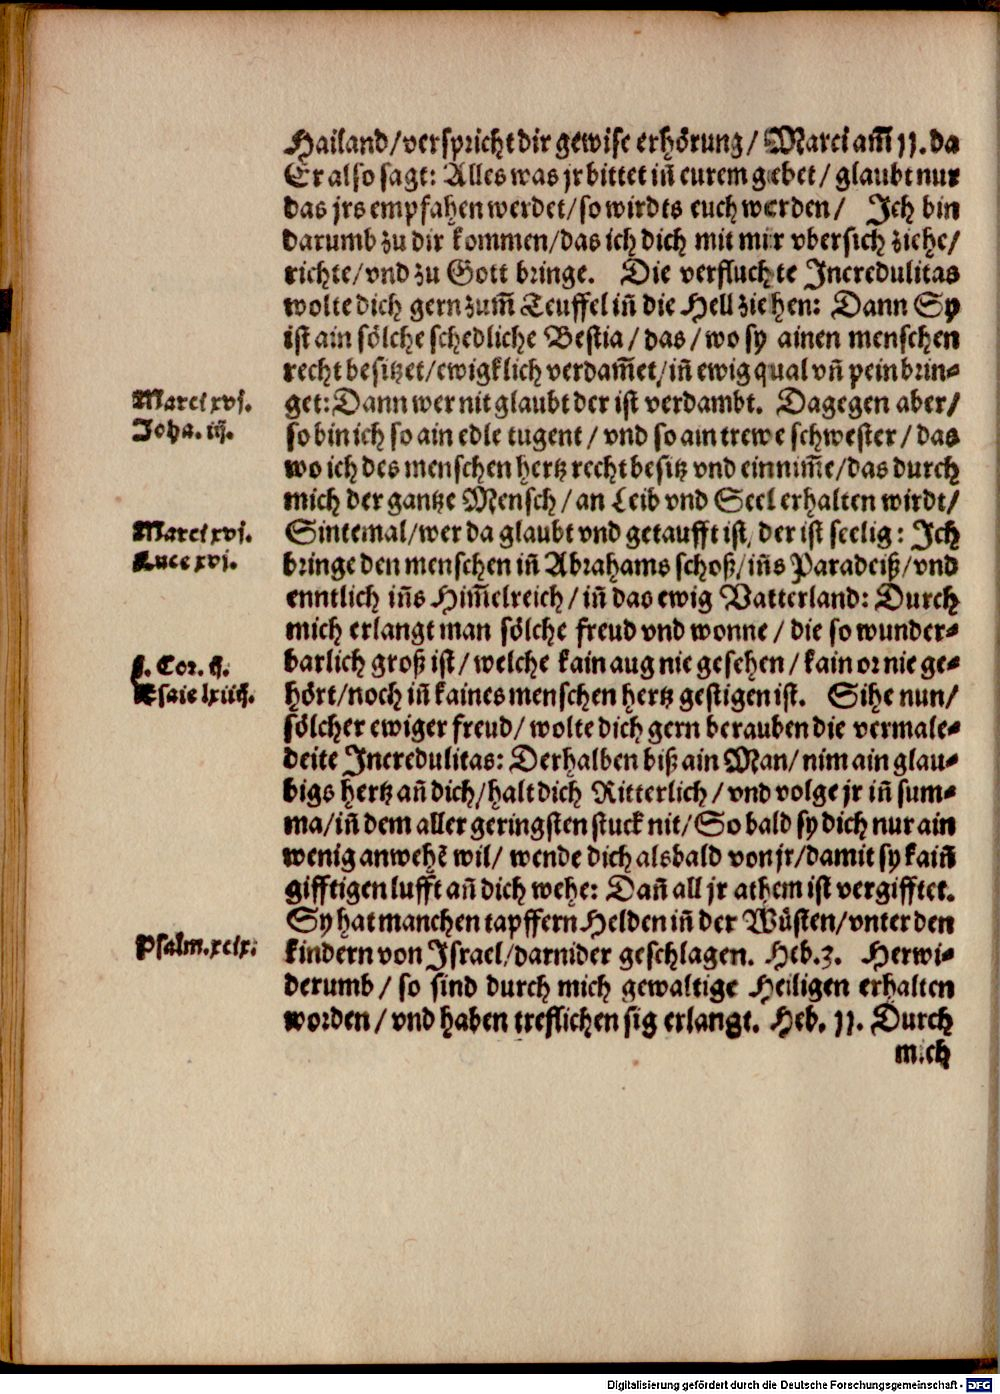 Hailand/verspricht dir gewise erhörung/ Marci am̃ 11. da
Er also sagt: Alles was jr bittet in̄ eurem gebet/ glaubt nur
das jrs empfahen werdet/ so wirdts euch werden/ Ich bin
darumb zu dir kommen/das ich dich mit mir vbersich ziehe/
richte/vnd zu Gott bringe. Die verfluchte Incredulitas
wolte dich gern zum̃ Teuffel in̄ die Hell ziehen: Dann Sy
ist ain sölche schedliche Bestia/ das/ wo sy ainen menschen
recht besitzet/ewigklich verdam̃et/in̄ ewig qual vn̄ pein brin-
Marci xvj.
get: Dann wer nit glaubt der ist verdambt. Dagegen aber/
Joha. iij.
so bin ich so ain edle tugent/ vnd so ain trewe schwester/ das
wo ich des menschen hertz recht besitz vnd einnim̃e/das durch
mich der gantze Mensch/ an Leib vnd Seel erhalten wirdt/
Marci xvj.
Sintemal/wer da glaubt vnd getaufft ist, der ist seelig: Ich
Luce xvj.
bringe den menschen in̄ Abrahams schoß/in̄s Paradeiß/vnd
enntlich in̄s Him̃elreich/ in̄ das ewig Vatterland: Durch
mich erlangt man sölche freud vnd wonne/ die so wunder-
j. Cor. ij.
barlich groß ist/ welche kain aug nie gesehen/ kain or nie ge-
Esaie lxiiij.
hört/noch in̄ kaines menschen hertz gestigen ist. Sihe nun/
sölcher ewiger freud/ wolte dich gern berauben die vermale-
deite Incredulitas: Derhalben biß ain Man/ nim ain glau-
bigs hertz an̄ dich/halt dich Ritterlich/ vnd volge jr in̄ sum-
ma/in̄ dem aller geringsten stuck nit/ So bald sy dich nur ain
wenig anwehē wil/ wende dich alsbald von jr/damit sy kain̄
gifftigen lufft an̄ dich wehe: Dan̄ all jr athem ist vergifftet.
Sy hat manchen tapffern Helden in̄ der Wüsten/vnter den
Psalm. xcix.
kindern von Israel/darnider geschlagen. Heb. 3. Herwi-
derumb/ so sind durch mich gewaltige Heiligen erhalten
worden/ vnd haben treflichen sig erlangt. Heb. 11. Durch
mich
Digitalisierung gefördert durch die Deutsche Forschungsgemeinschaft - DFG